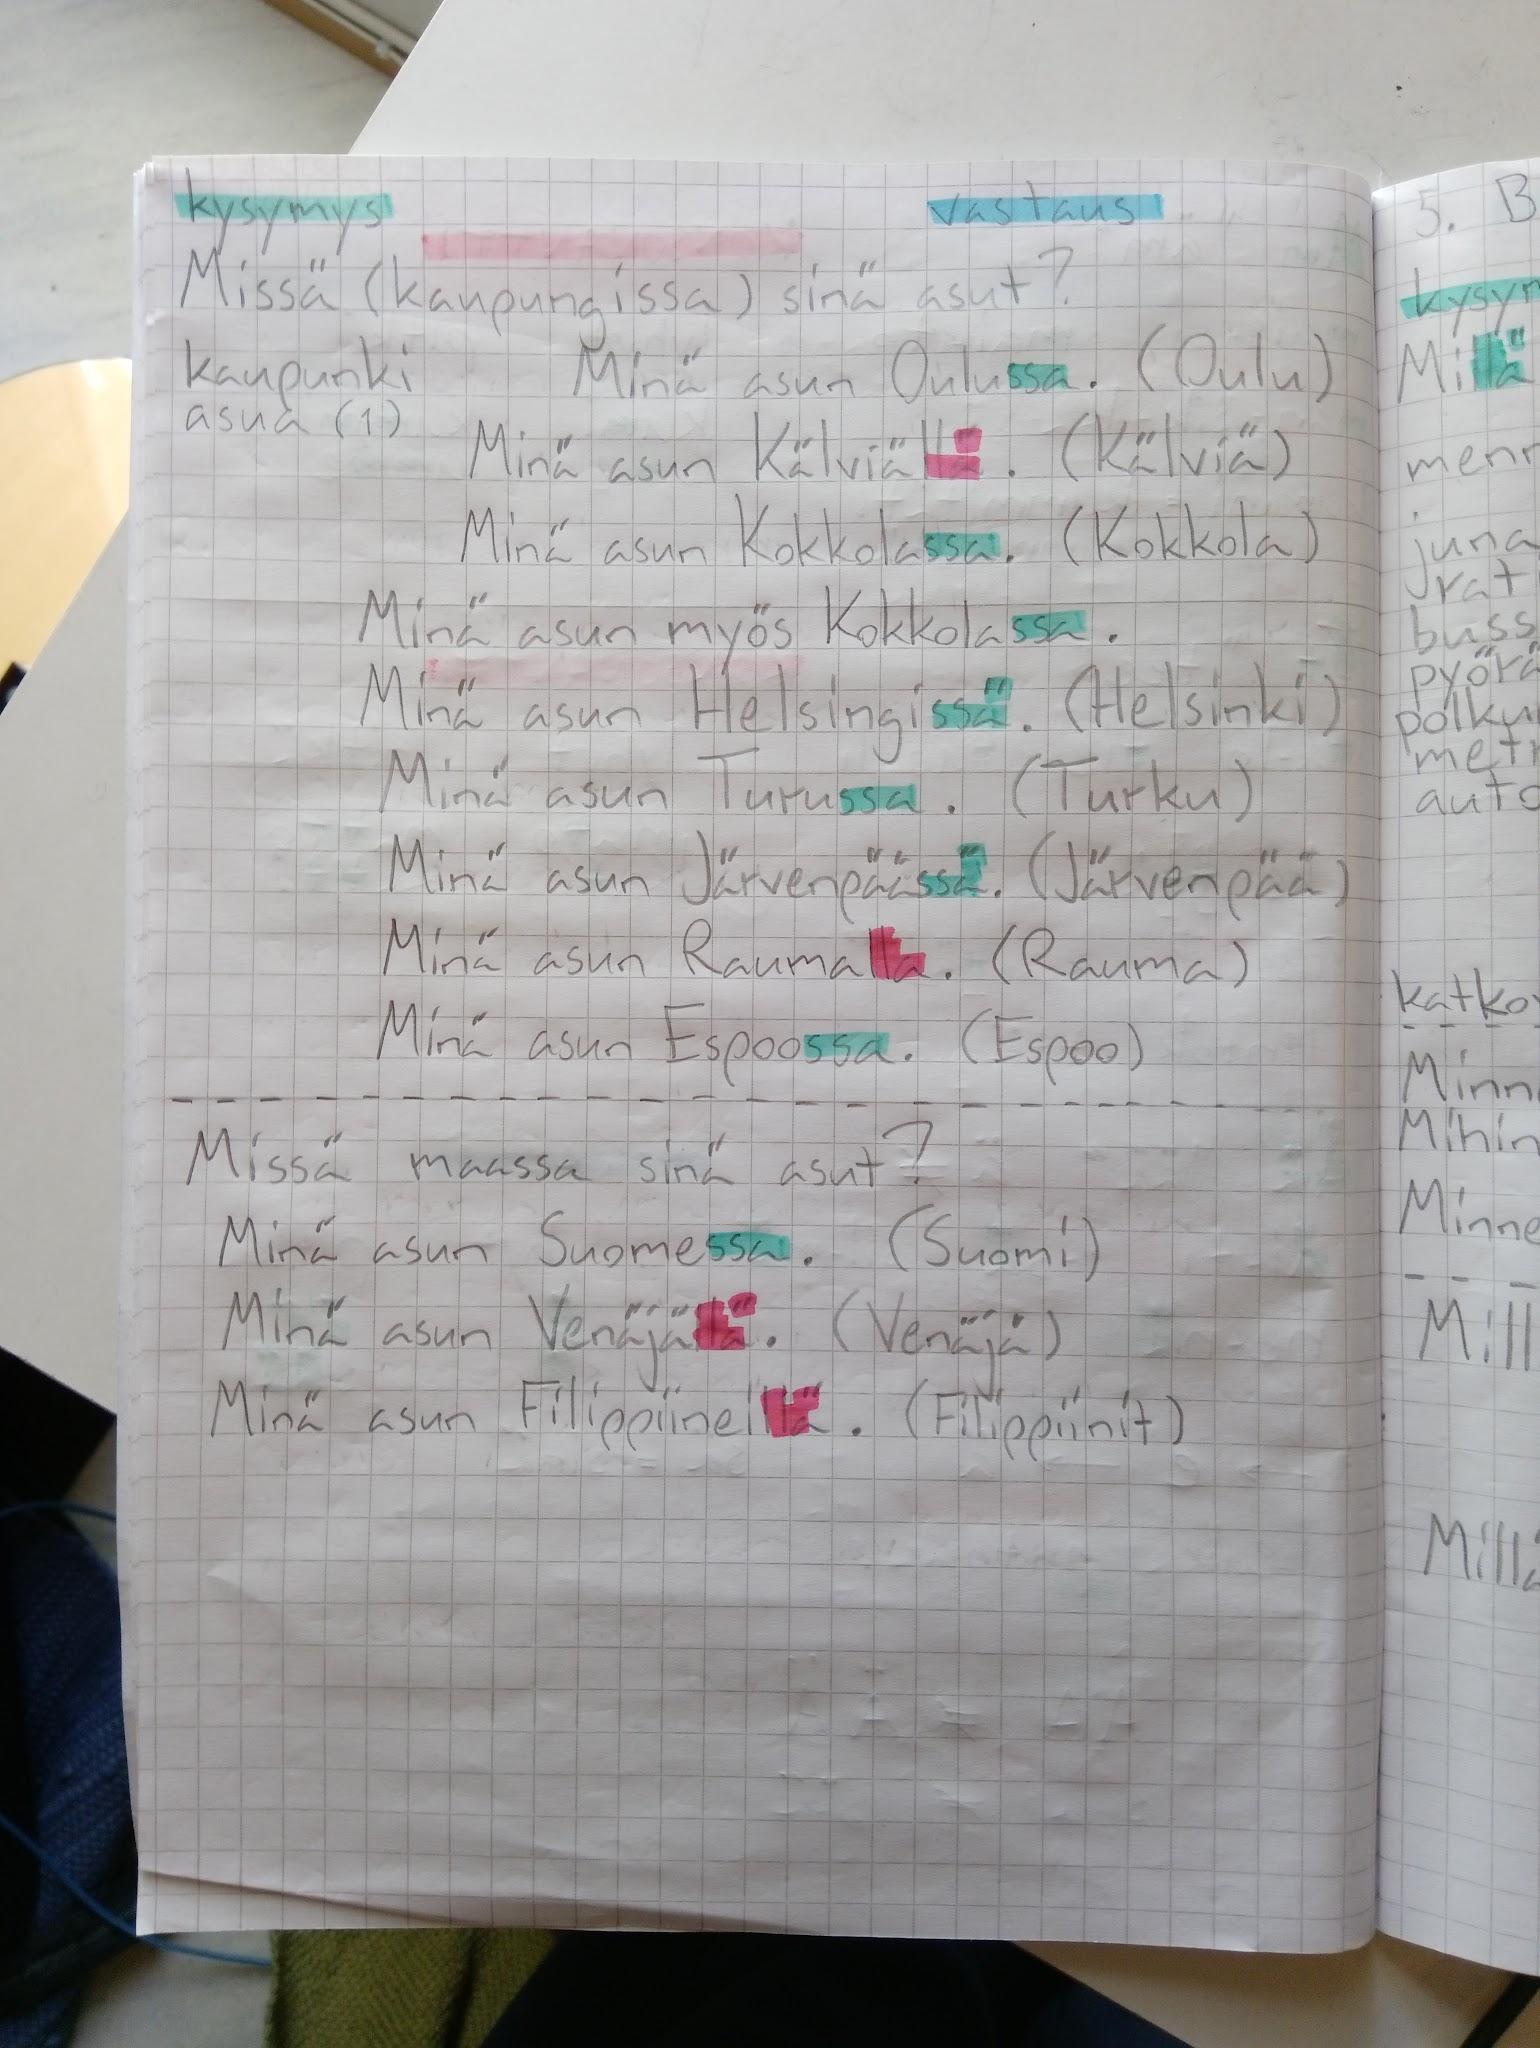 kysymys vastaus
Missä (kaupungissa) sinä asut?
kaupunki Minä asun Oulussa. (Oulu)
asua (1)
Minä asun Kälviällä. (Kälviä)
Minä asun Kokkolassa. (Kokkola)
Minä asun myös Kokkolassa.
Minä asun Helsingissä. (Helsinki)
Minä asun Turussa. (Turku)
Minä asun Järvenpäässä. (Järvenpää)
Minä asun Raumalla. (Rauma)
Minä asun Espoossa. (Espoo)
Missä maassa sinä asut?
Minä asun Suomessa. (Suomi)
Minä asun Venäjällä. (Venäjä)
Minä asun Filippiineillä. (Filippiinit)
5. B
kysym
Millä
menn
juna
rati
buss
pyörä
polku
metr
auto
katkov
Minn
Mihin
Minne
Mill
Millä